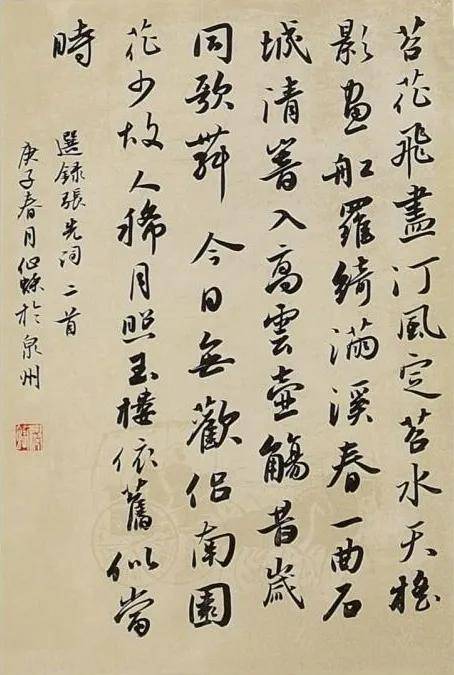 苕花飛盡汀風定苕水天搖
影畫舡羅綺滿溪春一曲石
城清響入高雲壺觴昔歲
同歌舞 今日無歡侶南園
花少故人稀月照玉樓依舊似當
時
選錄張先詞二首
庚子春月於泉州